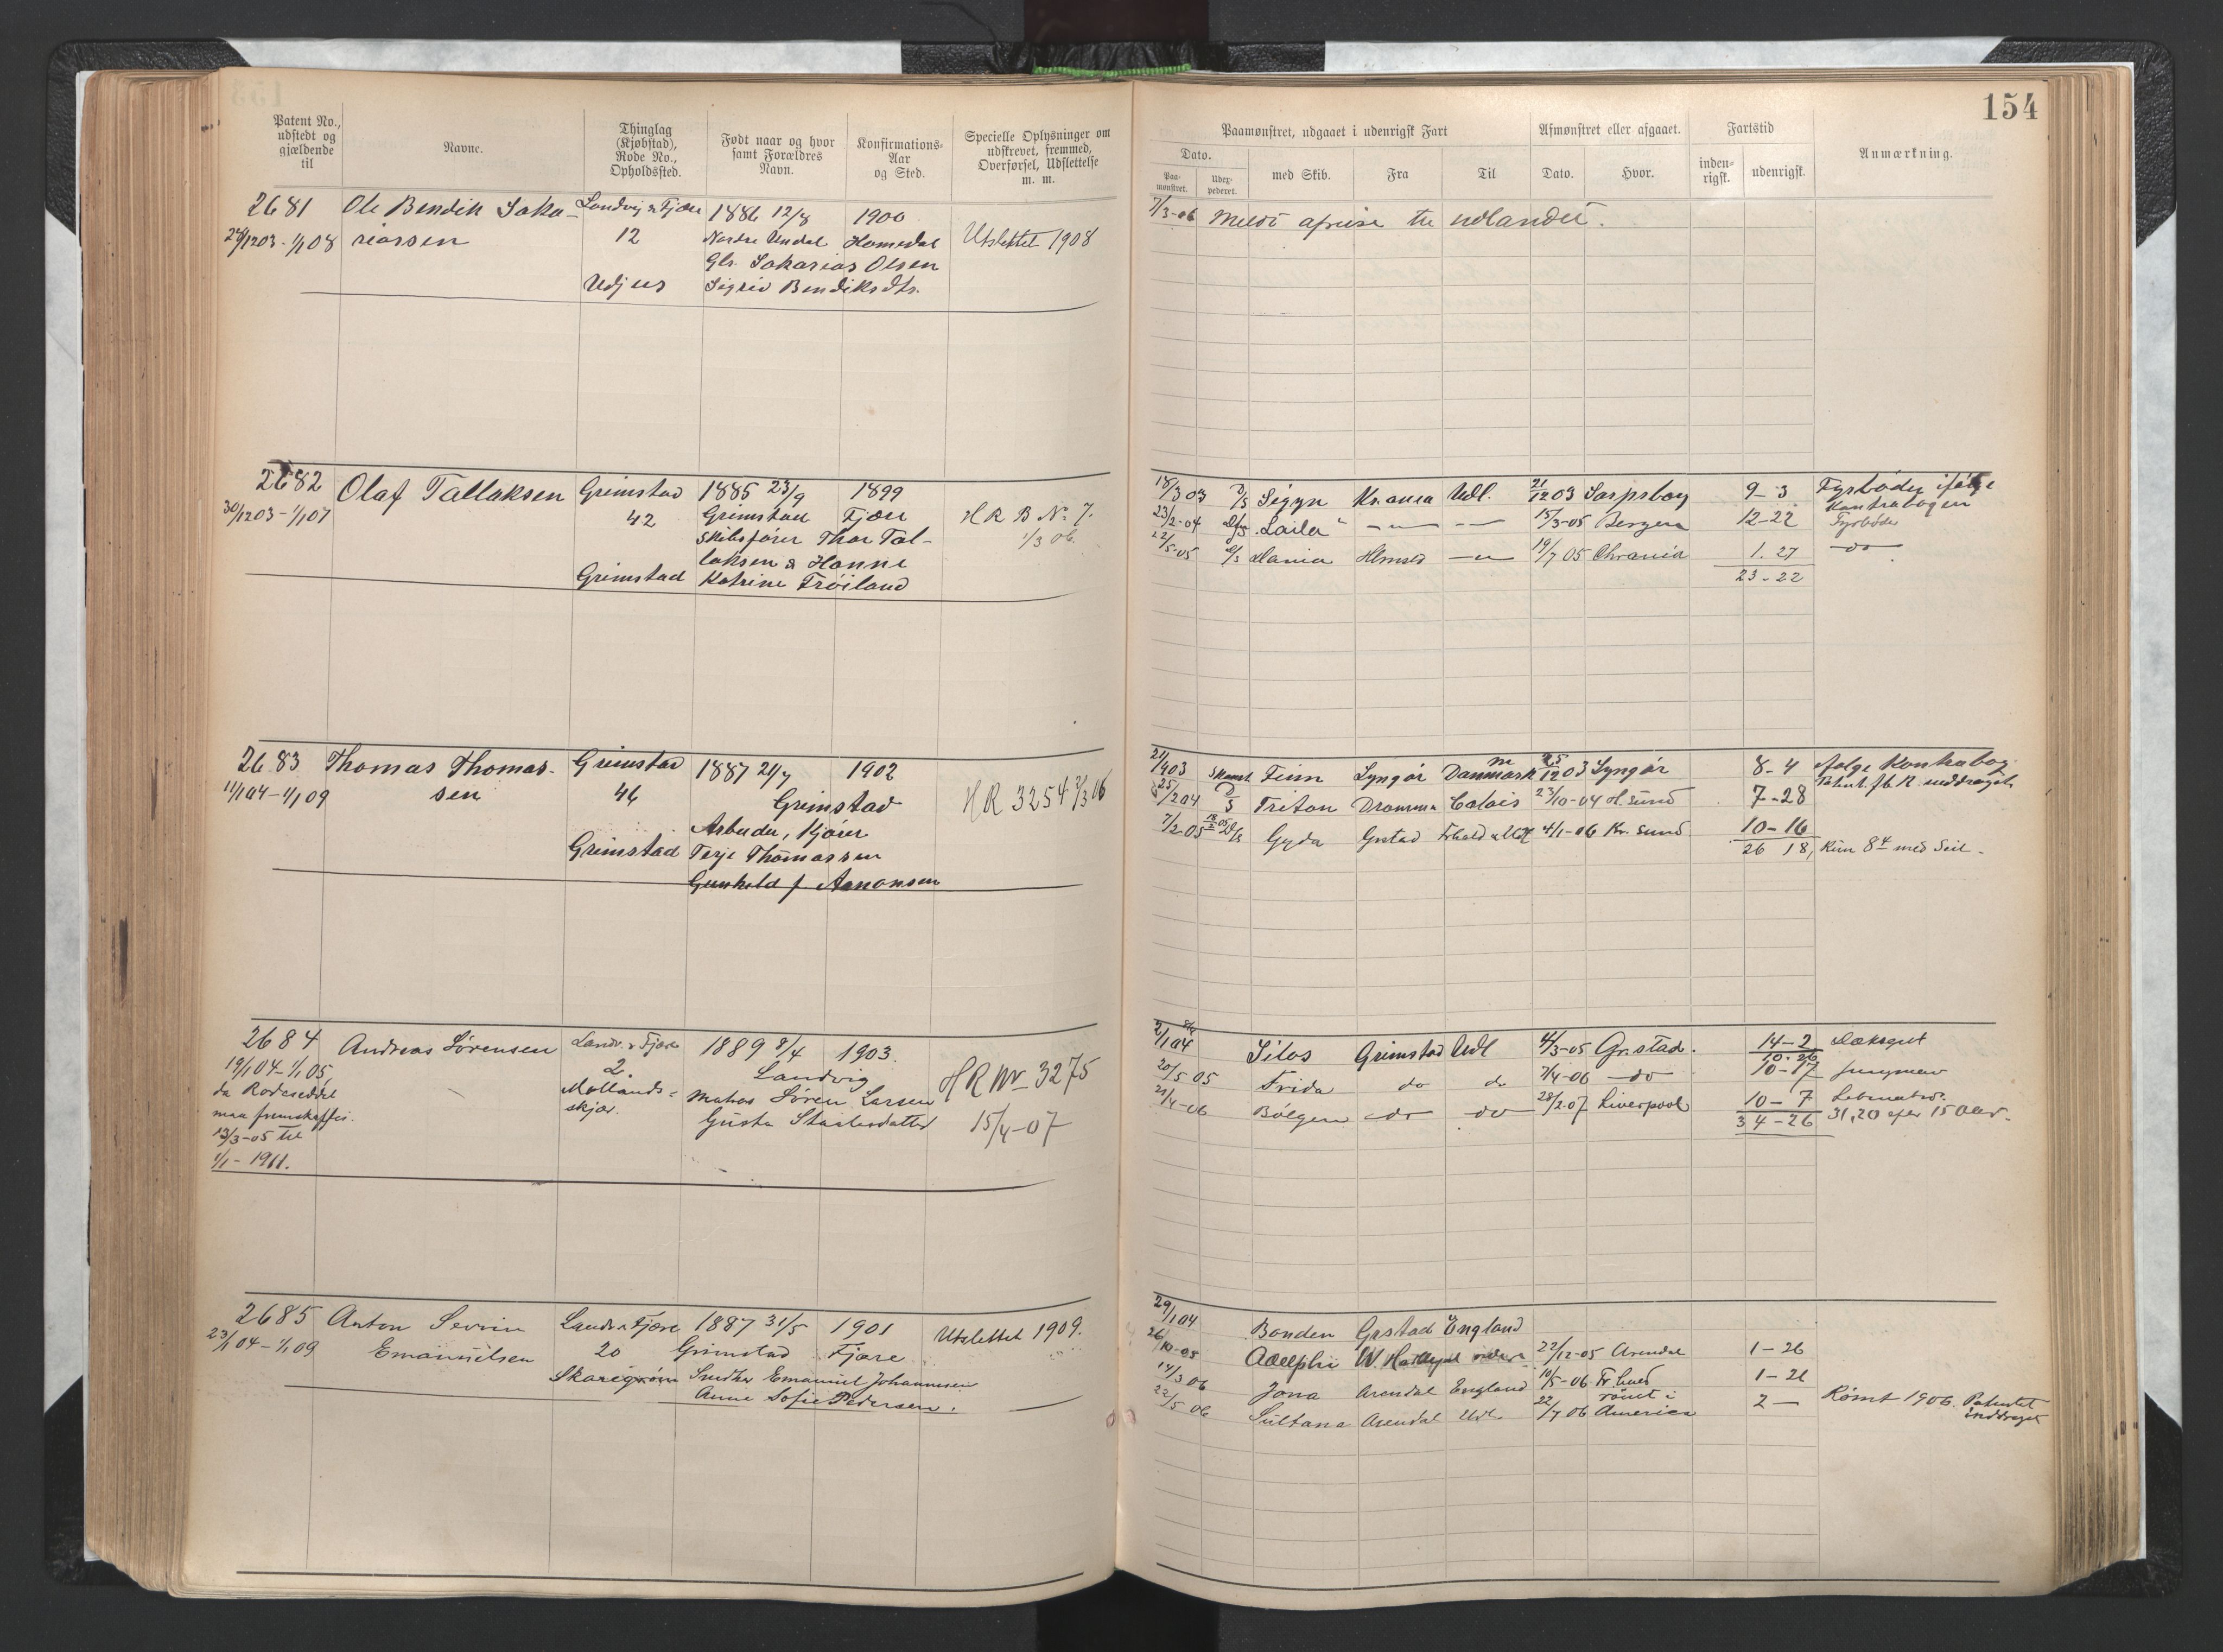 154
Patent No., udstedt og gjældende til
Navne.
Thinglag (Kjøbstad), Rode No., Opholdssted.
Født naar og hvor samt Forældres Navn.
Konfirmations-Aar og Sted.
Specielle Oplysninger om udskrevet, fremmed, Overførsel, Udslettelse m. m.
Paamønstret, udgaaet i udenrigsk Fart
Afmønstret eller afgaaet.
Fartstid
Anmærkning.
Dato.
Paa-mønstret.
Udex-pederet.
med Skib.
Fra
Til
Dato.
Hvor.
inden-rigsk.
udenrigsk.
2681 Ole Bendik Saka- Landvig & Fjære 1886 12/8 1900
1203 - 1/1 08 riassen 12 Nordre Undal Homedal Utslettet 1908
Gbr. Sakarias Olsen
Udjus Sigrid Bendiksdtr.
7/3-06 Meldt afreise til udlandet.
2682 Olaf Tallaksen Grimstad 1885 23/9 1899
30/12 03 - 1/1 07 42 Grimstad Fjære HR B No 7.
Skibsfører Thor Tal- 1/3 06.
laksen & Hanne
Grimstad Katrine Trøiland
18/3 03 D/S Sigyn Kr.ania Udl. 21/12 03 Sarpsborg 9-3 Fyrbøder ifølge
Kontrabogen
23/2-04 D/S "Laila" 15/3-05 Bergen 12-22 Fyrbøder
22/5-05 D/S Hania 19/7 05 Chrania 1. 27 do
23-22
2683 Thomas Thomas- Grimstad 1887 21/7 1902
11/1 04 - 1/1 09 sen 46 Grimstad HR 3254 2/3 16
Arbeider, Kjører
Grimstad Terje Thomassen
Gunhild f. Aanonsen
21/4 03 Finn Lyngør Danmark 25/12 03 Lyngør 8-4 ifølge Kontrabog.
25/2 04 D/S Triton Drammen Calais 23/10-04 H.sund 7-28
7/2 05 18/2 05 D/S Gyda Gstad 4/1-06 Kr.sund 10-16
26 18, Kun 8 4 med Seil.
2684 Andreas Sørensen Landv. & Fjære 1889 8/4 1903.
19/1 04 - 1/1 05 2. Landvig HR Nr 3275
da Rodeseddel Mollands- Matros Søren Larsen
maa fremskaffes. skjær. Gusta Staalesdatter 15/4-07
13/3-05 til
1/1 - 1911.
2/1 04 Silos Grimstad Udl 4/3-05 Gr.stad. 14-2 Dæksgut
10-26
20/5 05 Frida do do 7/4-06 do 10-17 Jungmand
21/4-06 Bølgen do do 28/2.07 Liverpool 10-7 Letmatros.
34-26 31,20 efter 15 Aar.
2685 Anton Severin Landv. & Fjære 1887 31/5 1901 Utslettet 1909.
23/1 04 - 1/1 09 Emanuelsen 20 Grimstad Fjære
Skaregrøm Snedker Emanuel Johannesen
Anne Sofie Pedersen.
29/1 04 Bonden Grstad England
26/10-05 Adelphi W. Hartlepool 22/12-05 Arendal 1-26
14/3 06 Jona Arendal England 10/5-06 Fr.hald 1-26
22/5 06 Sultana Arendal Udl. 22/7 06 rømt i America 2 - Rømt 1906. Patentet
inddraget